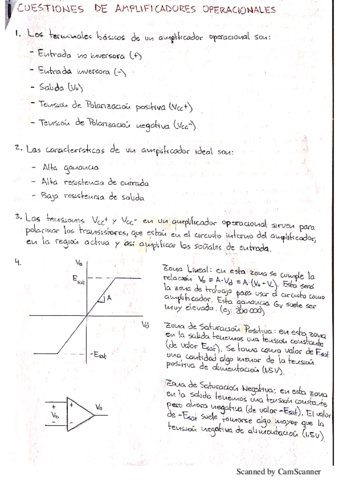 CUESTIONES DE AMPLIFICADORES OPERACIONALES
1. Los terminales básicos de un amplificador operacional son:
- Entrada no inversora (+)
- Entrada inversora (-)
- Salida (Vo)
- Tensión de Polarización positiva (Vcc+)
- Tensión de Polarización negativa (Vcc-)
2. Las características de un amplificador ideal son:
- Alta ganancia
- Alta resistencia de entrada
- Baja resistencia de salida
3. Las tensiones Vcc+ y Vcc- en un amplificador operacional sirven para
polarizar los transistores, que están en el circuito interno del amplificador,
en la región activa y así amplificar las señales de entrada.
4.
Vo
Esat
A
Vd
-Esat
Zona Lineal: en esta zona se cumple la
relación Vo = A·Vd = A·(V+ - V-). Esta será
la zona de trabajo para usar el circuito como
amplificador. Esta ganancia Gv suele ser
muy elevada. (ej: 200 000)
Zona de Saturación Positiva: en esta zona
en la salida tenemos una tensión constante
(de valor Esat). Se toma como valor de Esat
una cantidad algo menor de la tensión
positiva de alimentación (1,5V).
Zona de Saturación Negativa: en esta zona
en la salida tenemos una tensión constante
pero ahora negativa (de valor -Esat). El valor
de -Esat suele tomarse algo mayor que la
tensión negativa de alimentación (1,5V).
+
Vin
-
+
-
Vo
Scanned by CamScanner